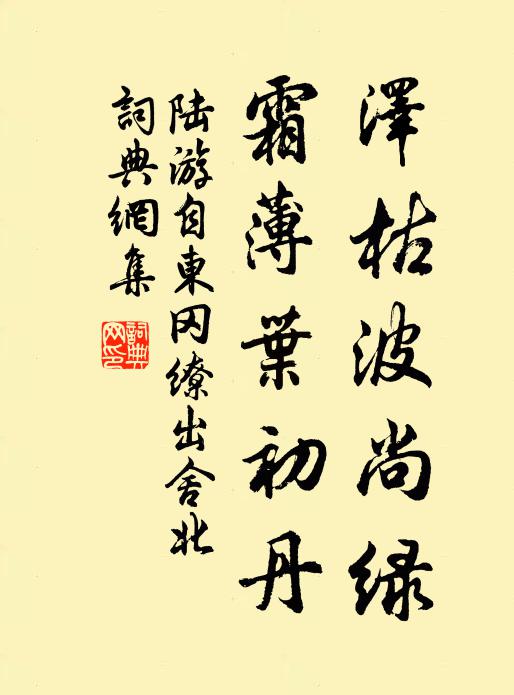 澤枯波尚緑
霜薄葉初丹
陆游自東冈缭出舍北
詞典網集
詞典网印